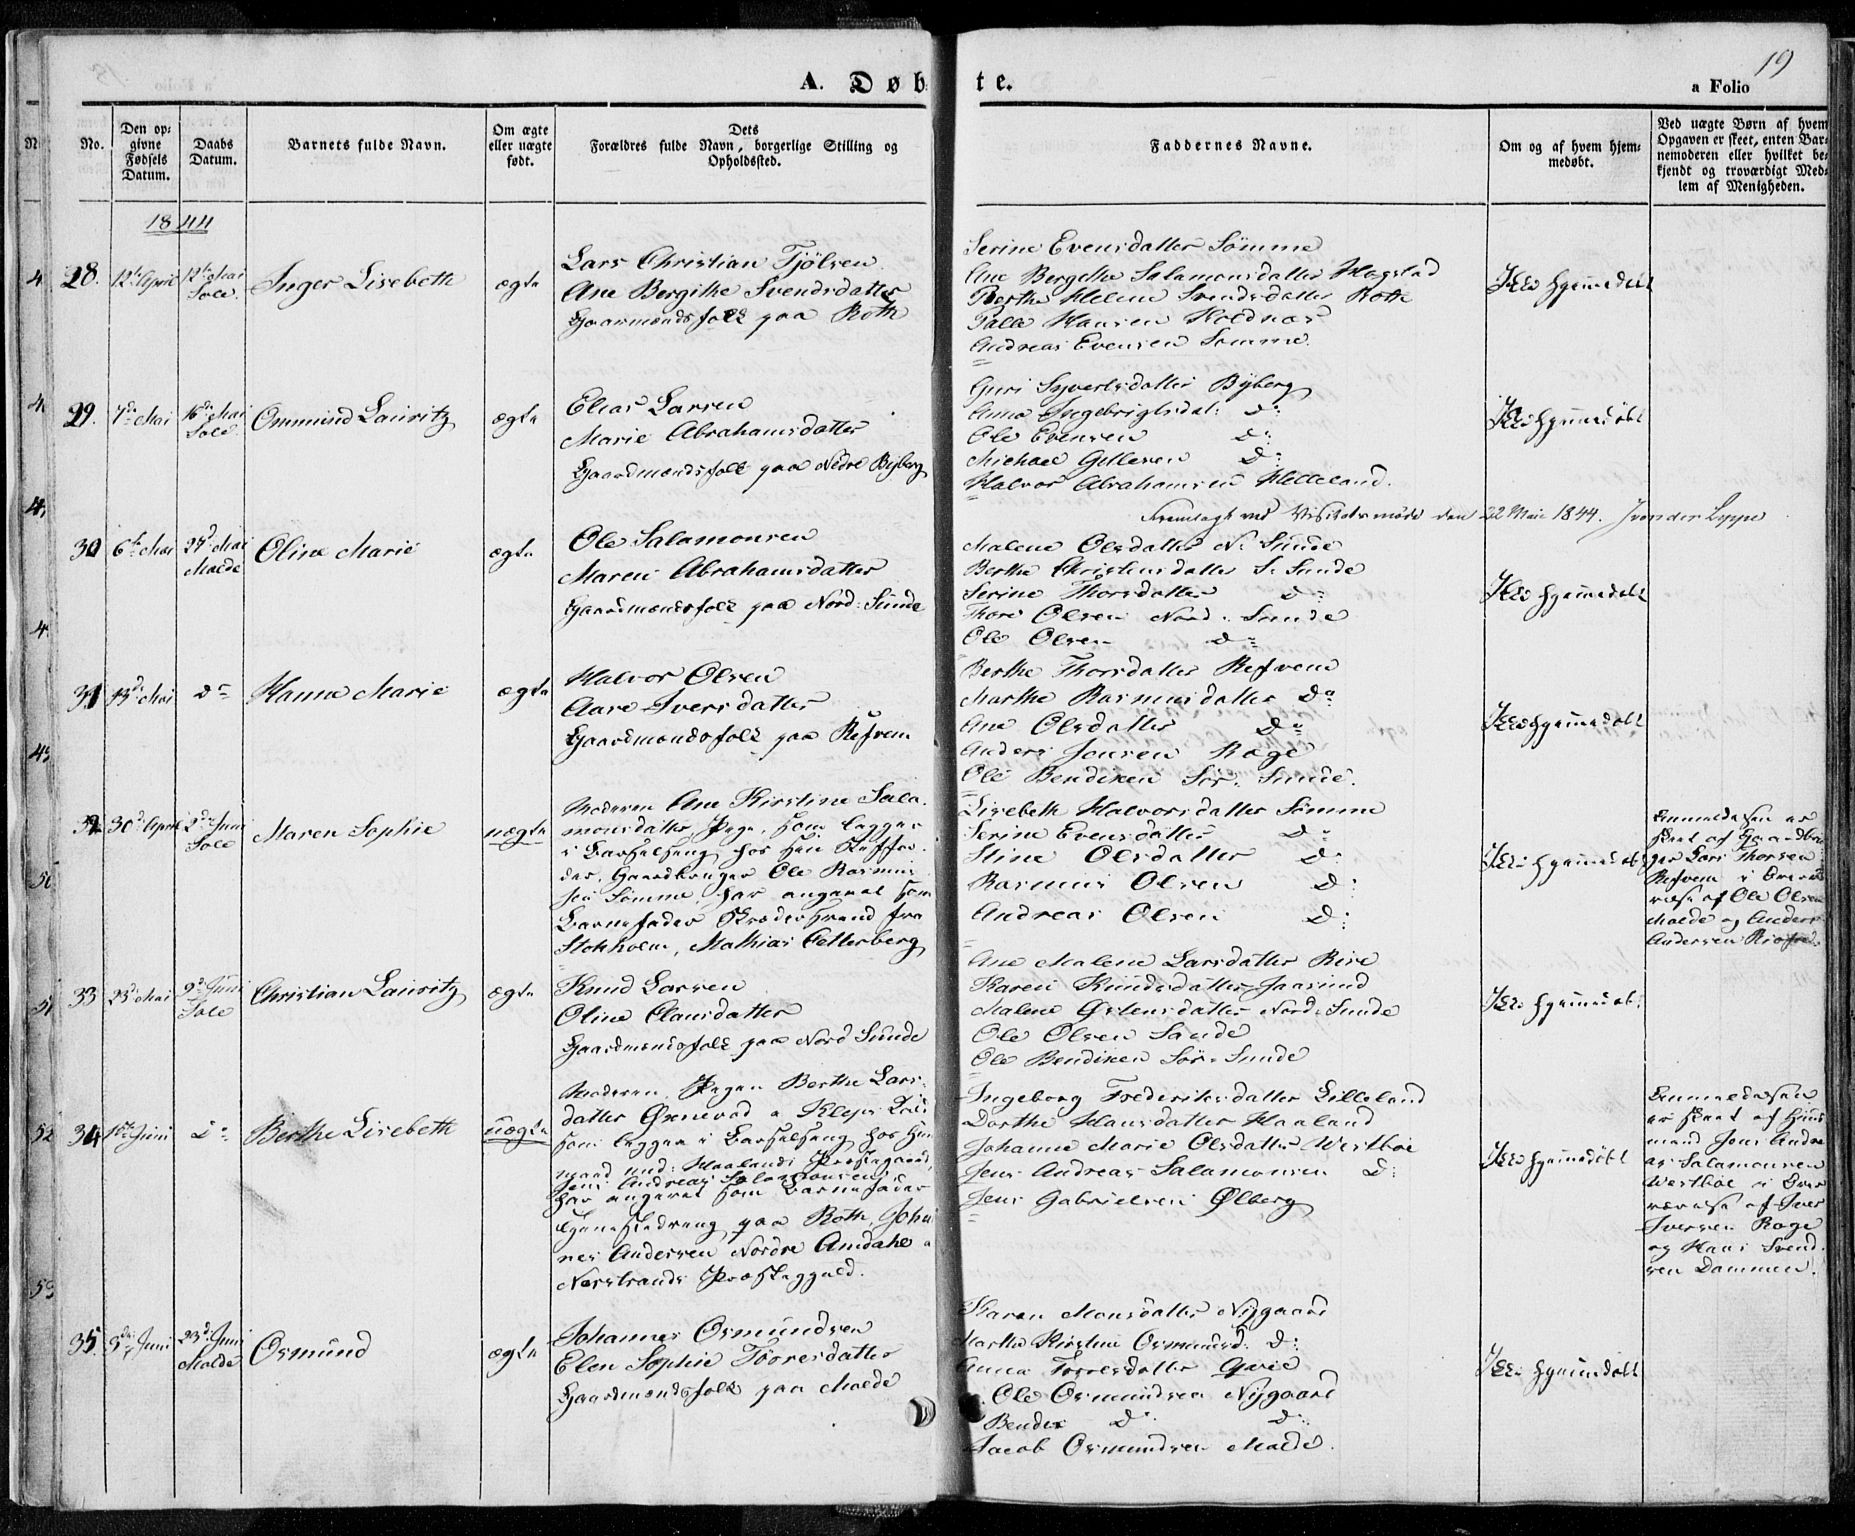 19
A. Døbte.
a Folio
No.
Den op=
givne
Fødsels
Datum.
Daabs
Datum.
Barnets fulde Navn.
Om ægte
eller uægte
født.
Dets
Forældres fulde Navn, borgerlige Stilling og
Opholdssted.
Faddernes Navne.
Om og af hvem hjem=
medøbt.
Ved uægte Børn af hvem
Opgaven er skeet, enten Bar=
nemoderen eller hvilket be=
kjendt og troværdigt Med=
lem af Menigheden.
1844
28. 12te April 12te Mai
Sole.
Inger Lisebeth
ægte
Lars Christian Tjölsen
Ane Bergithe Svendsdatter
Gaarmandsfolk paa Roth
Serine Evensdatter Sömme
Ane Bergithe Salamonsdatter Hogstad
Berthe Helene Svendsdatter Roth
Palle Hansen Koldnæs
Andreas Evensen Sömme.
Ikke hjemmedøbt
29. 7de Mai 16de Mai
Sole
Ommund Lauritz
ægte
Elias Larsen
Marie Abrahamsdatter
Gaardmandsfolk paa Nedre Byberg
Guri Syvertsdatter Byberg
Anna Ingebrigtsdat: D:
Ole Evensen D:
Michael Gitlesen D:
Halvor Abrahamsen Helleland.
Ikke hjemmedøbt
Fremlagt ved Visitatsmøde den 22 Mai 1844.
30 6te Mai 27de Mai
Malde
Oline Marie
ægte
Ole Salamonsen
Maren Abrahamsdatter
Gaardmandsfolk paa Nord: Sunde
Malene Olsdatter N: Sunde
Berthe Christensdatter S: Sunde
Serine Thorsdatter D:
Thore Olsen Nord: Sunde
Ole Olsen D:
Ikke hjemmedøbt
31 13de Mai D:
Hanne Marie
ægte
Halvor Olsen
Aase Iversdatter
Gaardmandsfolk paa Refvem
Berthe Thorsdatter Refvem
Marthe Rasmusdatter D:
Ane Olsdatter D:
Anders Jensen Ræge
Ole Bendixen Sör: Sunde.
Ikke hjemmedøbt
32 30de April 2den Juni
Sole
Maren Sophie
uægte
Moderen Ane Kirstine Sala=
monsdatter, Pige, som ligger
i Barselseng hos sin Stiffa=
der, Gaardbruger Ole Rasmus
sen Sömme, har angivet som
Barnefader Skrædersvend fra
Stokholm, Mathias Cetterberg
Lisebeth Halvorsdatter Sömme
Serine Evensdatter D:
Stine Olsdatter D:
Rasmus Olsen D:
Andreas Olsen D:
Ikke hjemmedøbt
Anmeldelsen er
skeet af Gaardbru
ger Lars Thorsen
Refvem i Overvæ
relse af Ole Olsen
Malde og Anders
Andersen
33 25de Mai 9de Juni
Sole
Christian Lauritz
ægte
Knud Larsen
Oline Clausdatter
Gaardmandsfolk paa Nord Sunde
Ane Malene Larsdatter Rire
Karen Knudsdatter Jaasund
Malene Östensdatter Nord: Sunde
Ole Olsen Sande
Ole Bendixen Sör: Sunde
Ikke hjemmedøbt
34 1ste Juni D:
Berthe Lisebeth
uægte
Moderen Pigen Berthe Lars=
datter Örnevad a Klep Præst
som ligger i Barselseng hos Hus
mand und: Haalands Præstegaard,
Jens Andreas Salamonsen
har angivet som Barnefader
Tjenestedreng paa Roth, Johan
nes Andersen Nordre Amdahl a
Nerstrands Præstegjeld.
Ingeborg Frederiksdatter Lilleland
Dorthe Hansdatter Haaland
Johanne Marie Olsdatter Westböe
Jens Andreas Salamonsen D:
Jens Gabrielsen Ölberg
Ikke hjemmedøbt
Anmeldelsen
er skeet af Huus
mand Jens Andre
as Salamonsen
Westböe i Over
værelse af Iver
Iversen Ræge
og Hans Svend
sen Dammen.
35. 3die Juni 23de Juni
Malde
Osmund
ægte
Johannes Osmundsen
Elen Sophie Törresdatter
Gaardmandsfolk paa Malde
Karen Monsdatter Nygaard
Marthe Kirstine Osmundsd: D:
Anna Torresdatter Gvie
Ole Osmundsen Nygaard
Bendix D: D:
Jacob Osmundsen Malde.
Ikke hjemmedøbt